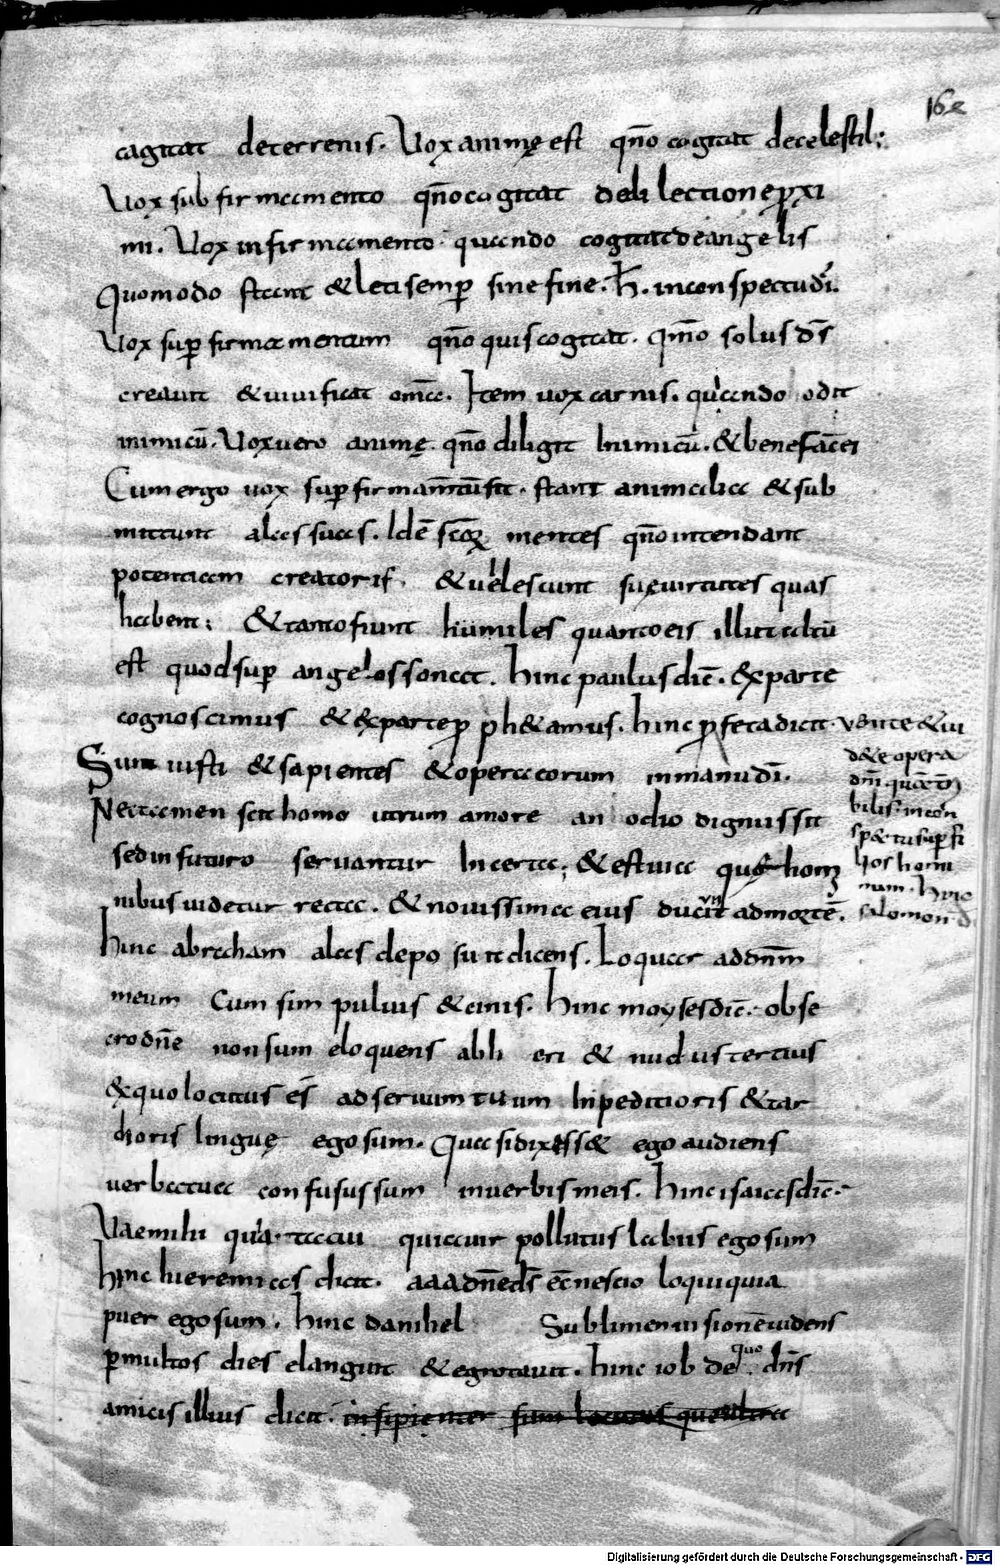 162
cogitat deterrenis. Vox animę est qn̄o cogitat decelestib;
Vox sub firmamento qn̄o cogitat dedilectione ꝓxi
mi. Vox in firmamento quando cogitat de angelis
Quomodo stant & leti semꝑ sine fine. h̄. in conspectu dī.
Vox suꝑ firmamentum qn̄o quis cogitat. Qm̄o solus d̄s
creauit & uiuificat om̄a. Item uox carnis. quando odit
inimicū. Vox uero animę. qn̄o diligit Inimicū. & benefac ei
Cum ergo uox suꝑ firmam̄tū fit. stant animalia & sub
mittunt alas suas. Idē sc̄oꝝ mentes qn̄o intendant
potentiam creatoris. & uilescunt suę uirtutes quas
habent; & tanto fiunt humiles quanto eis illut altū
est quod suꝑ angelos sonat. hinc paulus dic̄. Ex parte
cognoscimus & ex parte ꝓph&amus. hinc ꝓfeta dicit. venite & ui
d&e opera
dn̄i quā t̄r
bilis in con
sp&tu suꝑ fi
lios homi
num. hinc
salomon d
Sunt iusti & sapientes & opera eorum in manu dī.
Nec tamen scit homo utrum amore an odio dignus sit
sed in futuro seruantur Incerta; & est uia quę hom
nibus uidetur recta. & nouissima eius ducunt ad mortē.
hinc abraham alas deposuit dicens. Loquar ad dn̄m
meum Cum sim puluis & cinis. hinc moyses dic̄. obse
cro dn̄e non sum eloquens ab heri & nudustertius
ex quo locutus es ad seruum tuum Inpeditioris & tar
dioris linguę ego sum. Quasi dixiss& ego audiens
uerba tua confusus sum in uerbis meis. hinc isaias dic̄.
Vae mihi quia tacui quia uir pollutus labiis ego sum
hinc hieremias dicit. a a a dn̄e d̄s ecc̄ nescio loqui quia
puer ego sum. hinc danihel Sublimem uisionē uidens
ꝑ multos dies elanguit & egrotauit. hinc iob de quo dn̄s
amicis illius dicit. insipienter sum locutus